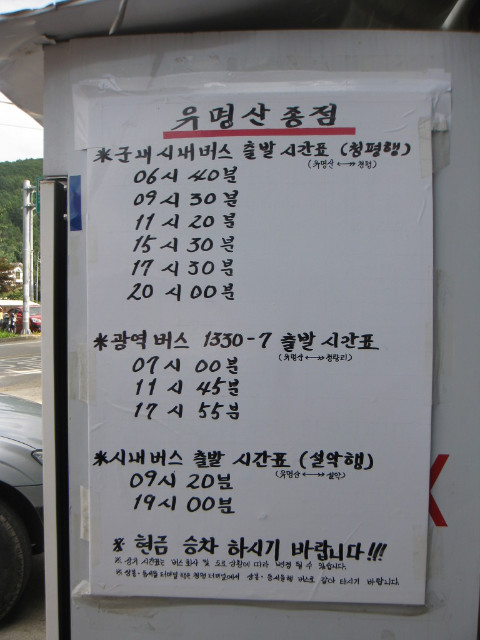 유명산종점
※군내시내버스 출발 시간표 (청평행)
(유명산 ↔ 청평)
06시 40분
09시 30분
11시 20분
15시 30분
17시 30분
20시 00분
※광역버스 1330-7 출발 시간표
(유명산 ↔ 청량리)
07시 00분
11시 45분
17시 55분
※시내버스 출발 시간표 (설악행)
(유명산 ↔ 설악)
09시 20분
19시 00분
※ 현금 승차 하시기 바랍니다!!!
※ 상기 시간표는 버스회사 및 도로 상황에 따라 변경 될 수 있습니다.
※ 상봉·동서울 터미널 청평 터미널에서 상봉·동서울행 버스로 갈아 타시기 바랍니다.